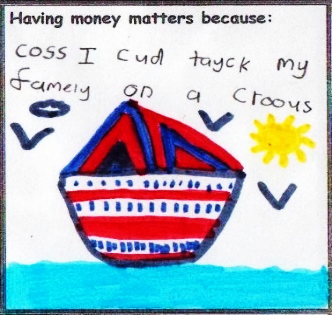 Having money matters because:
coss I cud tayck my
famely on a croous